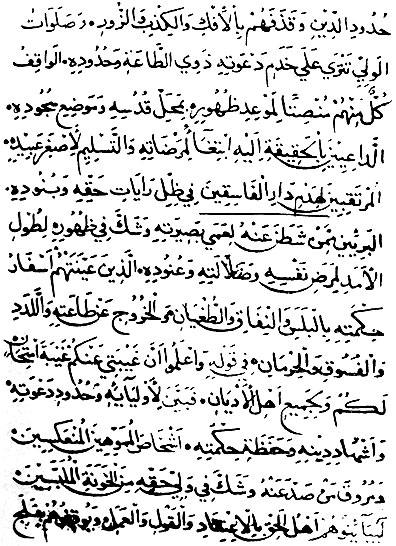 حُدود الدّين وَقَذفَهُم بالافك والكذب والزّور. وصَلوَات
الوليّ تترى علي خدم دعوته ذوي الطّاعَة وحدوده. الواقف
كلّ منهُم منصتًا لموعد ظهوره. بمحلّ قُدسه وموضع سجُوده.
الدّاعين بالحقيقة اليه ابتغاءً لمرضاته والتّسليم لأصغر عبيده
المرتقبين لهدم دار الفاسقين في ظلّ رايات حقّه وبنُوده.
البريّين ممّن شطن عنهُ لعمي بصيرته وشكّ في ظهوره لطول
الأمد لمرض نفسه وضلالته وعنُوده. الّذين عيّنتهُم اسفار
حكمته بالبلس والنّفاق والطّغيان والخروج عن طاعته واللّدد
والفسُوق والحرمان. في قوله واعلموا انّ غيبتي عنكم غيبة امتحان
لكم ولجميع اهل الأديان. فبيّن لأوليآئه وحدُود دعوته
واشهاد دينه وحفظة حكمته. اشخاص المموّهين المنعكسين
ومروق من صدّ عنهُ وشكّ في وليّ حقّه من الخونة الملبّسين
ليباينوهم اهل الحقّ بالاعتقاد والقول والعمل.